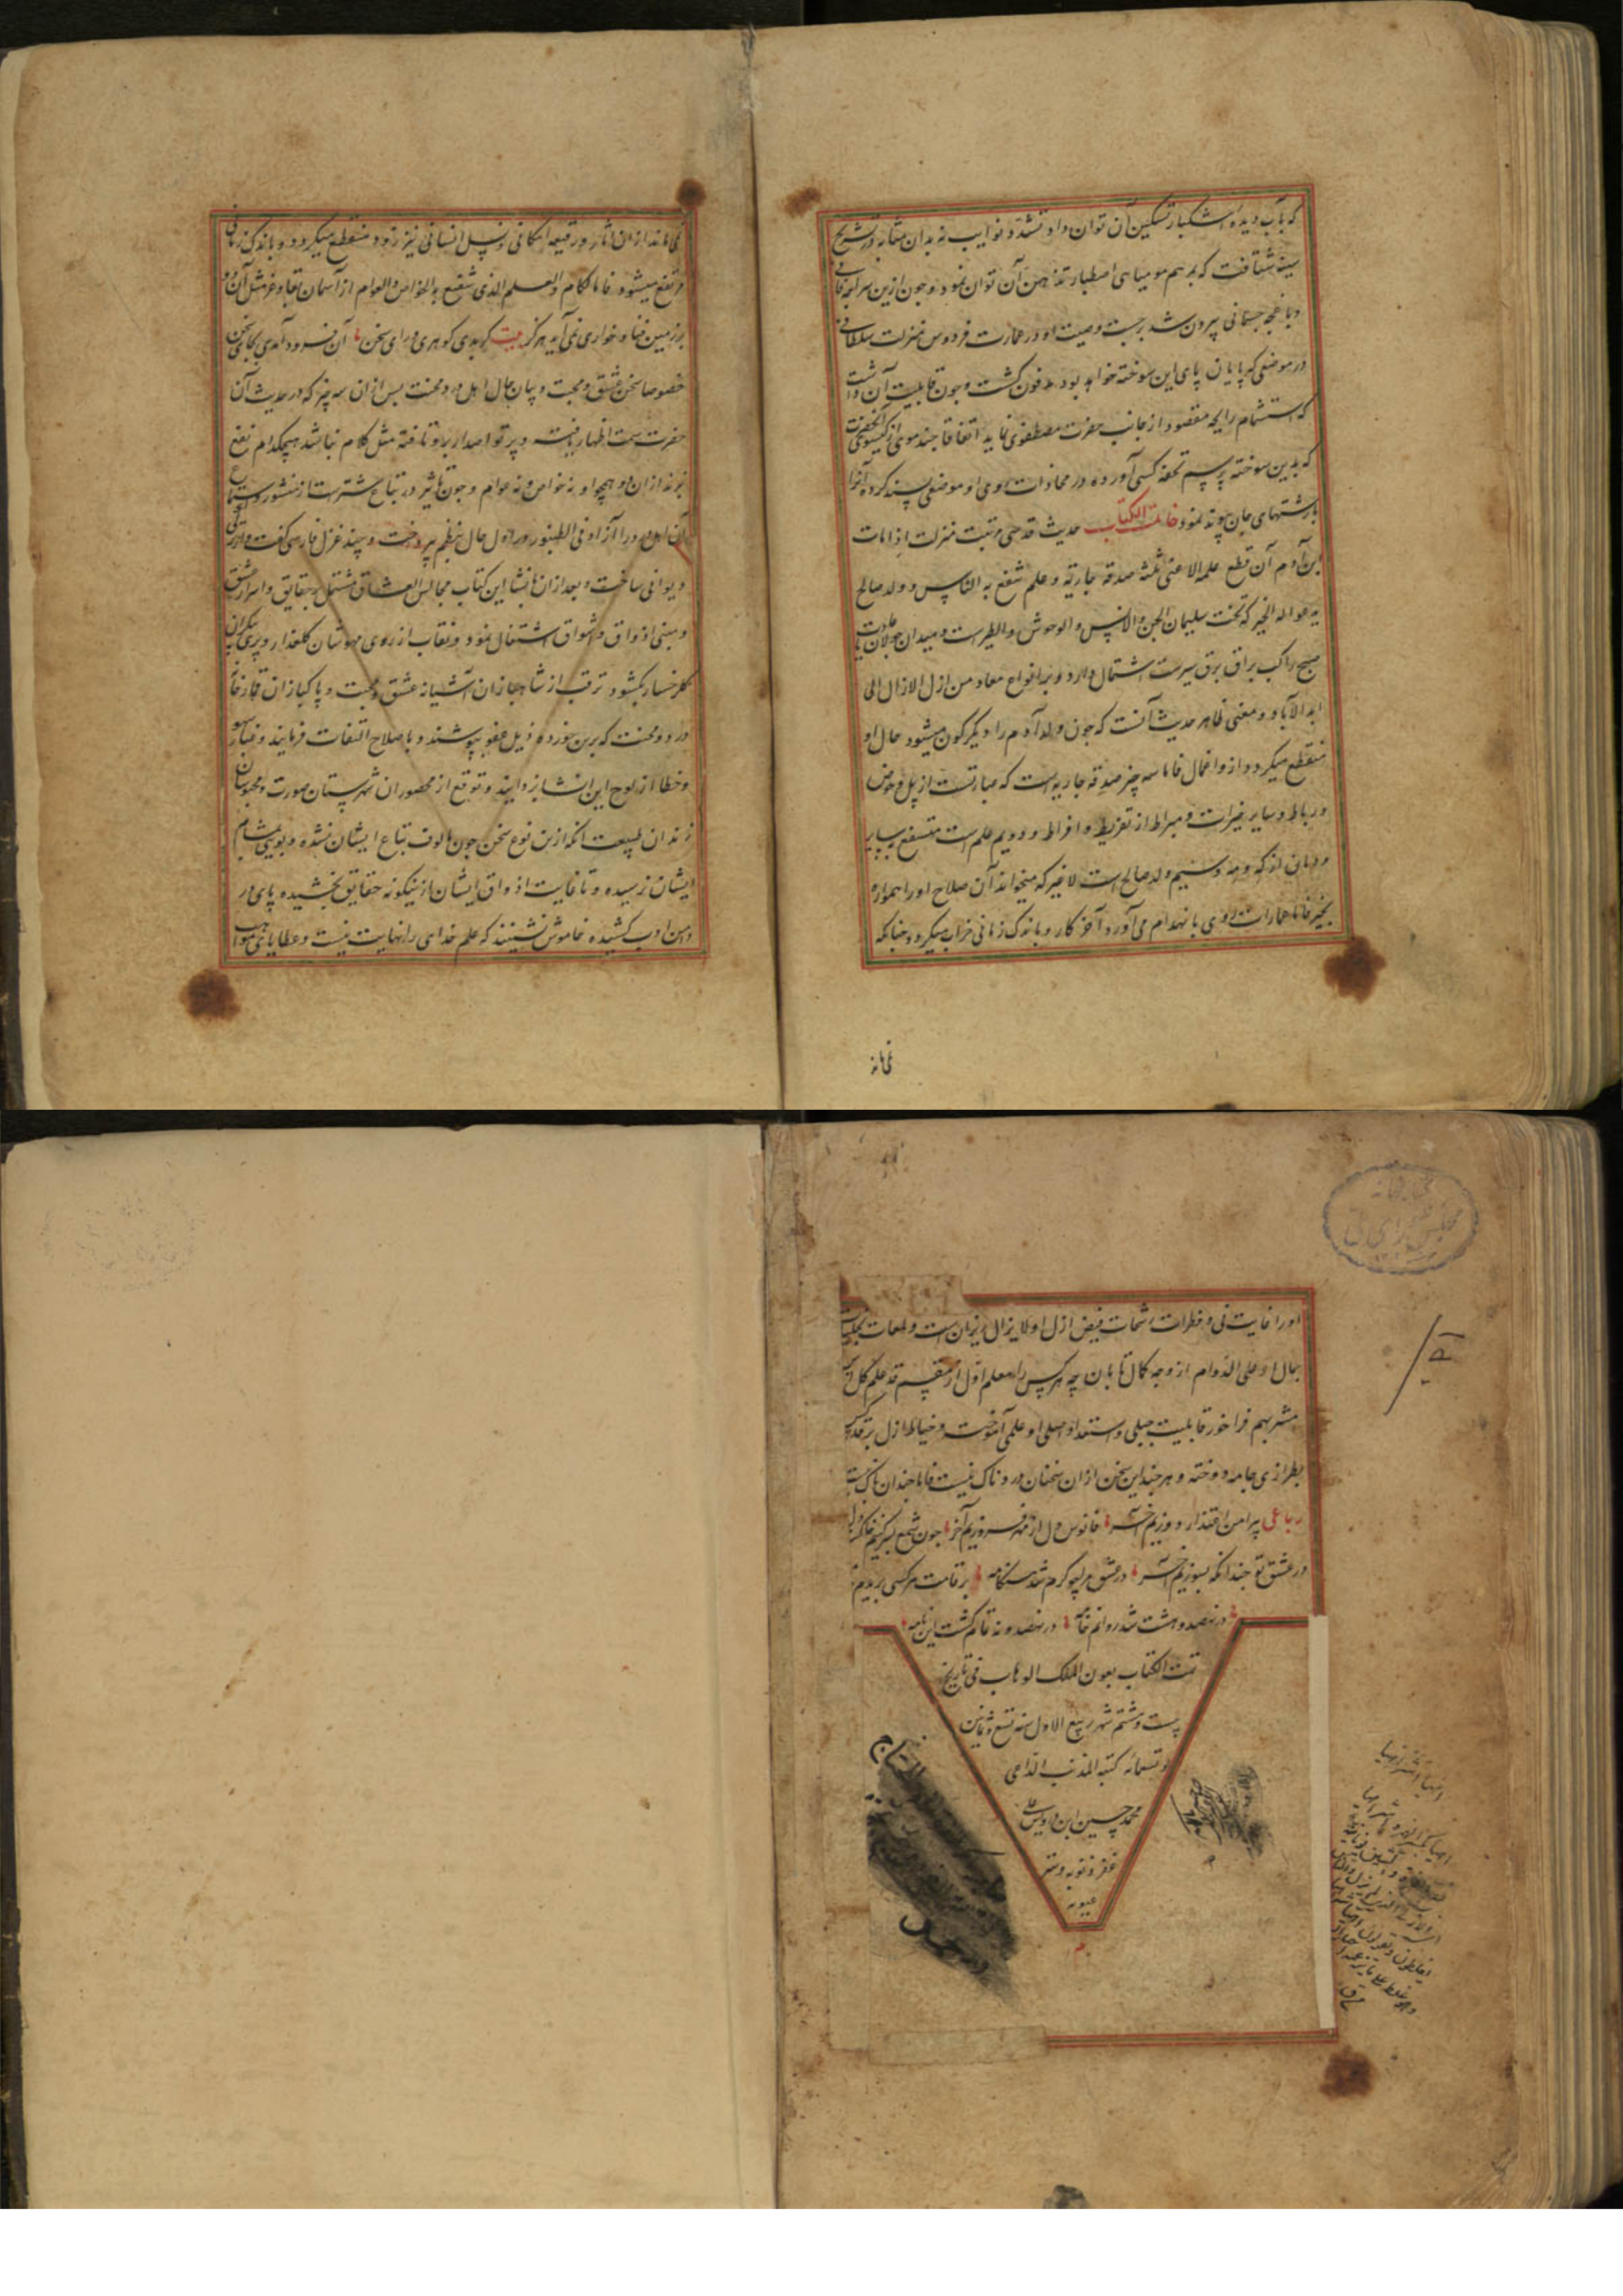 که بآب دیده اشکبار تسکین آن توان داد و تشدد نوایب نه بدان مثابه در تشریح
سینه شتافت که بمرهم مومیایی اصطبار تدهین آن توان نمود و چون ازین سراچه فانی
و باغچه جسمانی بیرون شد بر حسب وصیت او در عمارت فردوس منزلت سلطانی
در موضعی که پایان پای این سوخته خواهد بود مدفون کشت و چون قابلیت آن داشت
که استشمام رایحه مقصود از جانب حضرت مصطفوی نماید اتفاقا چند موی از کیسوی آنحضرت
که بدین سوخته برسم تحفه کسی آورده در محاذات روی او موضعی پسند کرده آنرا
بارشتهای جان پیوند نمود خاتمة الکتاب حدیث قدسی مرتبت منزلت اذا مات
ابن آدم آن قطع عمله الا عنی ثلثه صدقه جاریه و علم شفع به الناس و ولد صالح
یدعوا له الخیر که تخت سلیمان الجن والانس والوحش والطیرست و میدان جولان
صبح راکب براق برق سیرست اشتمال دارد و بر انواع معاد من ازل الازال الی
ابد الآباد و معنی ظاهر حدیث آنست که چون ولد آدم را دیکرکون میشود حال او
منقطع میکردد ازو اعمال فاما سه چیز صدقه جاریه است که عبارتست از پل و حوض
و رباط و سایر خیرات و مبراط از تفریط و افراط و دویم علم است منتفع به سایر
مردمان از که و مه و سیم ولد صالح است لا غیر که میخواند آن صلاح او را همواره
بخیر فاما عمارات روی بانهدام می‌آورد و آخر کار و باندک زمانی خراب میکردد چنانکه
نمی‌ماند
نمی‌ماند ازان اثار و رقیعه امکانی و نسل انسانی نیز زود منقطع میکردد و باندک زمانی
مرتفع میشود فاما کلام والعلم الذی شفع به الخواص والعوام از آسمان بقا و غر مثل آن
بر زمین فنا و خواری نمی‌آید هرکز بیت کر بدی کوهری ورای سخن آن فرود آمدی بجای سخن
خصوصا سخن عشق و محبت و بیان حال اهل درد و محنت پس ازان سه چیز که در حدیث آن
حضرت سمت اظهار یافته و پرتو اصدار برو تافته مثل کلام نباشد هیچکدام نفع
برند ازان و همچو او نه خواص و نه عوام و چون تاثیر در تباع شترست از منشور و استماع
آن اهل درد را آزاد فی الطنبور در اول حال بنظم پرداخت و چند غزل فارسی کفت و ترکی
دیوانی ساخت و بعد ازان بانشا این کتاب مجالس العشاق مشتمل بر حقایق و اسرار عشق
و مبنی اذواق و اشواق اشتغال نمود و نقاب از روی مهوشان کلعذار و پری پیکران
کلرخسار بکشود ترقب از شاهبازان آشیانه عشق و محبت و پاکبازان قمارخانه
درد و محنت که برین خورده ذیل عفو بپوشند و باصلاح التفات فرمایند و غبار سهو
و خطا از لوح این انشا بزدایند و توقع از محصوران شهرستان صورت و محبوسان
زندان طبیعت آنکه ازین نوع سخن چون مالوف تباع ایشان نشده و بویی بمشام
ایشان نرسیده و تا غایت اذواق ایشان ازینکونه حقایق نچشیده پای در
دامن ادب کشیده خاموش نشینند که علم خدای را نهایت نیست و عطایای مواهب
او را غایت نی و قطرات رشحات فیض ازل او لایزال ریزان است و لمعات تجلیات
جمال او علی الدوام از وجه کمال تابان چه هر کس را معلم اول از قد علم کل اناس
مشربهم فراخور قابلیت جبلی و استعداد اصلی او علمی آموخت و خیاط ازل بر قد هر کس
بطرازی جامه دوخته و هر چند این سخن ازان سخنان دردناک نیست فاما چندان باک نیست
رباعی پیرامن اقتدار دوزیم آخر فانوس دل از مهر فروزیم آخر چون شمع
در عشق تو چندانکه بسوزیم آخر در عشق هر کرم شد هنکامه بر قامت هر کسی بریدم
در نهصد و هشت شد روانم خامه در نهصد و نه تمام کشت این نامه
تمت الکتاب بعون الملک الوهاب فی تاریخ
بیست و هشتم شهر ربیع الاول سنه تسع و ثمانین
و تسعمائه کتبه المذنب الداعی
محمد حسین ابن درویش علی
غفر ذنوبه و ستر
عیوبه
کتابخانه
مجلس شورای ملی